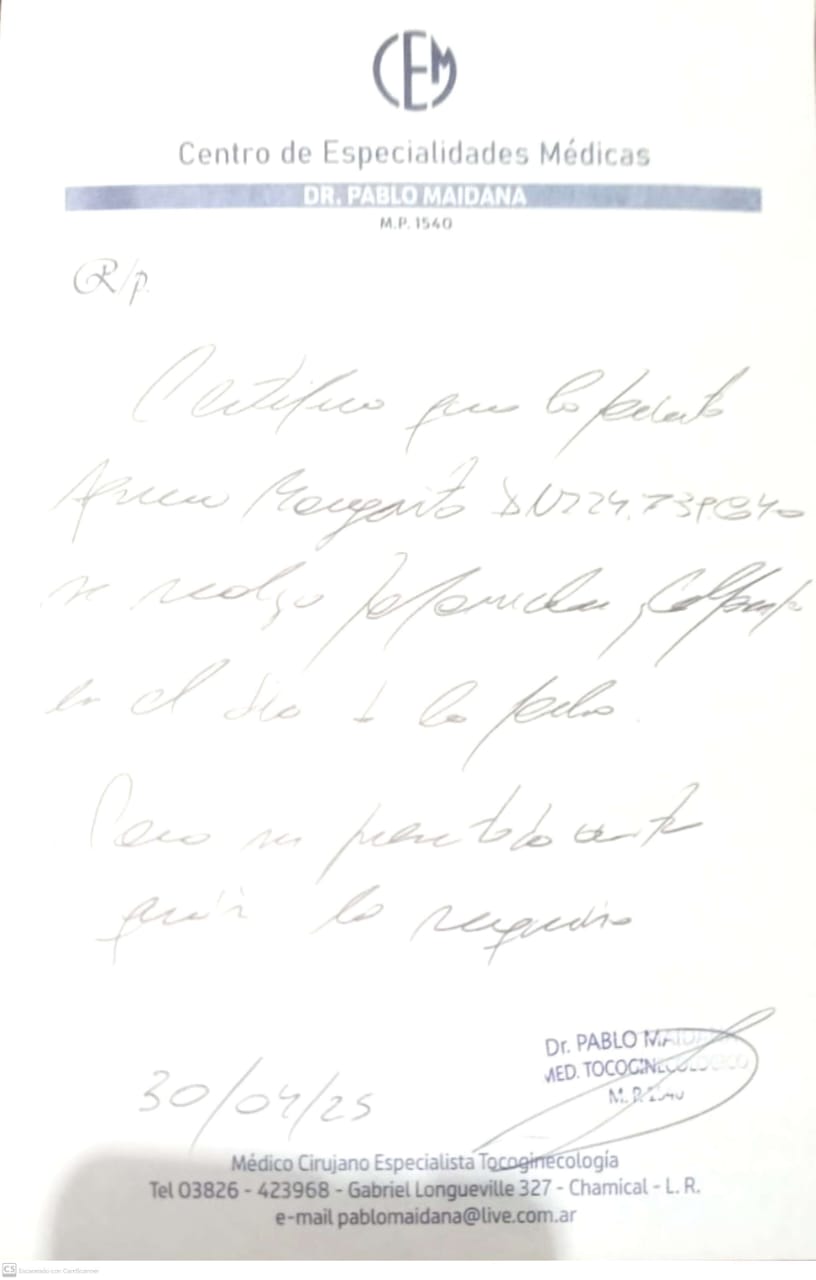 CEM
Centro de Especialidades Médicas
DR. PABLO MAIDANA
M.P. 1540
R/p.
Certifico que la paciente
Margarita DNI 24.739.
se realizo Papanicolau y Colposcopia
en el dia d la fecha.
Para ser presentado ante
quién lo requiera
30/04/25
Dr. PABLO MAIDANA
MED. TOCOGINECOLOGICO
M.P. 1540
Médico Cirujano Especialista Tocoginecología
Tel 03826 - 423968 - Gabriel Longueville 327 - Chamical - L. R.
e-mail pablomaidana@live.com.ar
CS Escaneado con CamScanner